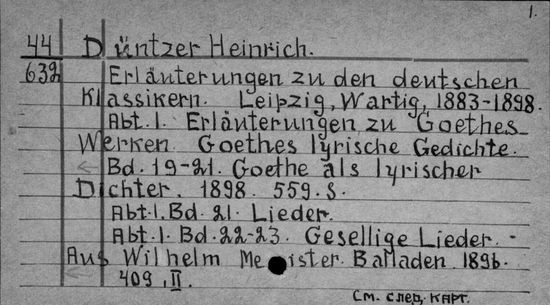 1.
44 Düntzer Heinrich.
632 Erläuterungen zu den deutschen
Klassikern. Leipzig, Wartig, 1883-1898.
Abt. 1. Erläuterungen zu Goethes
Werken. Goethes lyrische Gedichte.
Bd. 19-21. Goethe als lyrischer
Dichter. 1898. 559. S.
Abt. 1. Bd. 21. Lieder.
Abt. 1. Bd. 22-23. Gesellige Lieder. -
Aus Wilhelm Meister. Balladen 1896.
409, II.
См. след. карт.